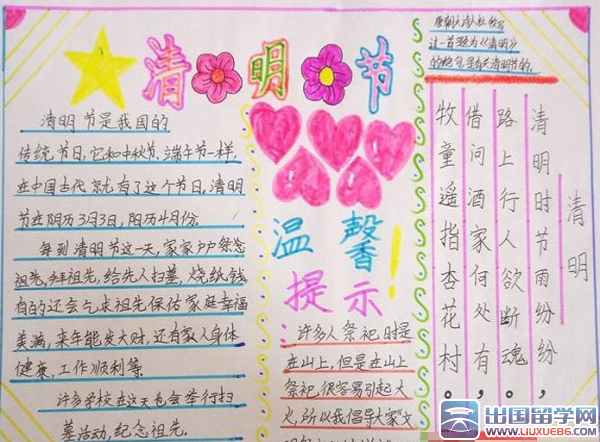 清明节
清明节是我国的
传统节日,它和中秋节、端午节一样,
在中国古代就有了这个节日,清明
节在阴历3月3日,阳历4月份。
每到清明节这一天,家家户户祭念
祖先,拜祖先,给先人扫墓,烧纸钱,
有的还会乞求祖先保佑家庭幸福
美满,来年能发大财,还有家人身体
健康,工作顺利等
许多学校在这天也会举行扫
墓活动,纪念祖先。
温馨
提示!
许多人祭祀时是
在山上,但是在山上
祭祀,很容易引起大
火,所以我倡导大家“文
唐朝大诗人杜牧写
过一首题为《清明》
的绝句是有关清明节的。
清明
清明时节雨纷纷,
路上行人欲断魂。
借问酒家何处有,
牧童遥指杏花村。
出国留学网
www.liuxue86.com